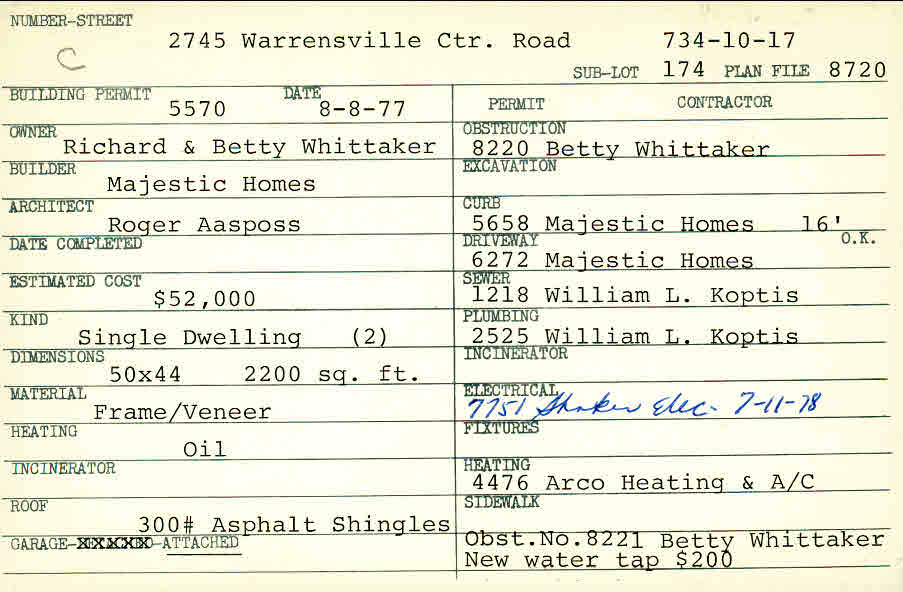 NUMBER-STREET
2745 Warrensville Ctr. Road 734-10-17
C
SUB-LOT 174 PLAN FILE 8720
BUILDING PERMIT 5570 DATE 8-8-77
OWNER
Richard & Betty Whittaker
BUILDER
Majestic Homes
ARCHITECT
Roger Aasposs
DATE COMPLETED
ESTIMATED COST
$52,000
KIND
Single Dwelling (2)
DIMENSIONS
50x44 2200 sq. ft.
MATERIAL
Frame/Veneer
HEATING
Oil
INCINERATOR
ROOF
300# Asphalt Shingles
GARAGE- -ATTACHED
PERMIT CONTRACTOR
OBSTRUCTION
8220 Betty Whittaker
EXCAVATION
CURB
5658 Majestic Homes 16'
O.K.
DRIVEWAY
6272 Majestic Homes
SEWER
1218 William L. Koptis
PLUMBING
2525 William L. Koptis
INCINERATOR
ELECTRICAL
7751 Shaker Elec. 7-11-78
FIXTURES
HEATING
4476 Arco Heating & A/C
SIDEWALK
Obst.No.8221 Betty Whittaker
New water tap $200